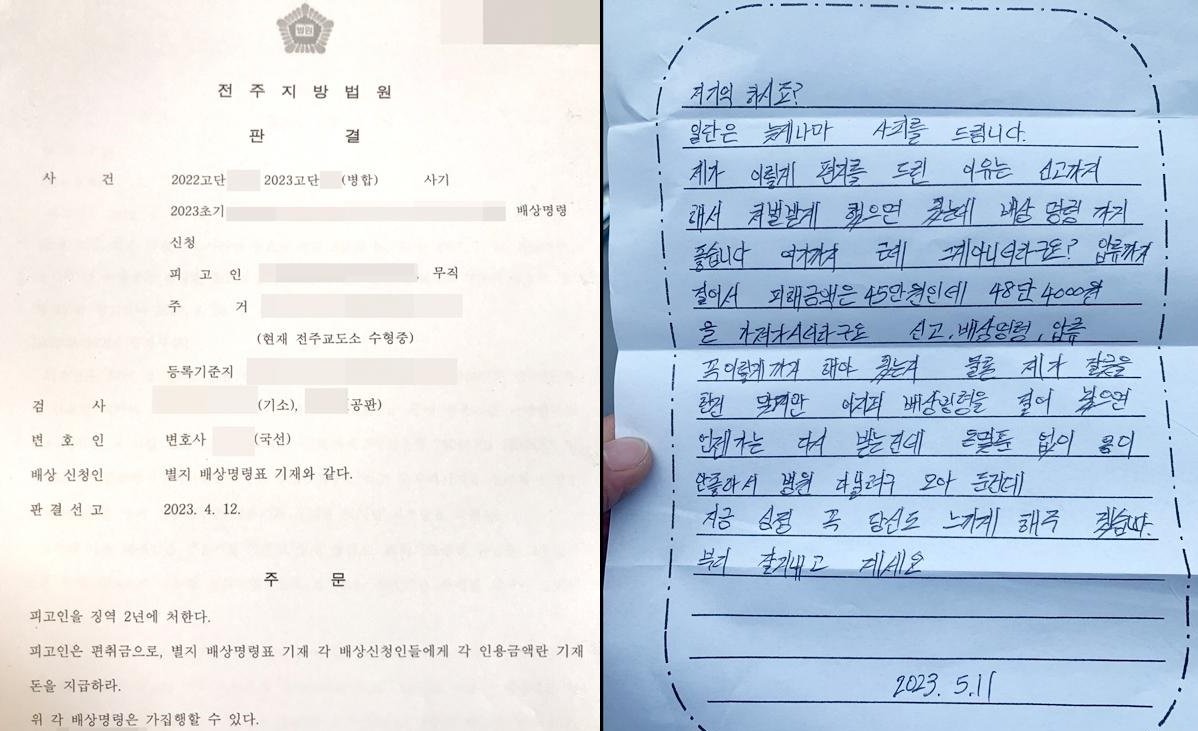 법원
전 주 지 방 법 원
판 결
사 건 2022고단 2023고단 (병합) 사기
2023초기 배상명령
신청
피 고 인 , 무직
주 거
(현재 전주교도소 수형중)
등록기준지
검 사 (기소), (공판)
변 호 인 변호사 (국선)
배상 신청인 별지 배상명령표 기재와 같다.
판 결 선 고 2023. 4. 12.
주 문
피고인을 징역 2년에 처한다.
피고인은 편취금으로, 별지 배상명령표 기재 각 배상신청인들에게 각 인용금액란 기재
돈을 지급하라.
위 각 배상명령은 가집행할 수 있다.
저기억 하시죠?
일단은 늦게나마 사죄를 드립니다.
제가 이렇게 편지를 드린 이유는 신고까지
해서 처벌받게 했으면 됐는데 배상 명령 까지
좋습니다 여기까지 근데 그게아니더라구요? 압류까지
걸어서 피해금액은 45만원인데 48만 4000원
을 가져가시더라구요 신고, 배상명령, 압류
꼭이렇게 까지 해야 했는지 물론 제가 잘못을
한건 맞지만 어차피 배상명령을 걸어 놨으면
언제가는 다시 받는건데 없이 몸이
안좋아서 병원 다닐려구 모아 둔건데
지금 심정 꼭 당신도 느끼게 해주 겠습니다.
부디 잘지내고 계세요
2023. 5.11